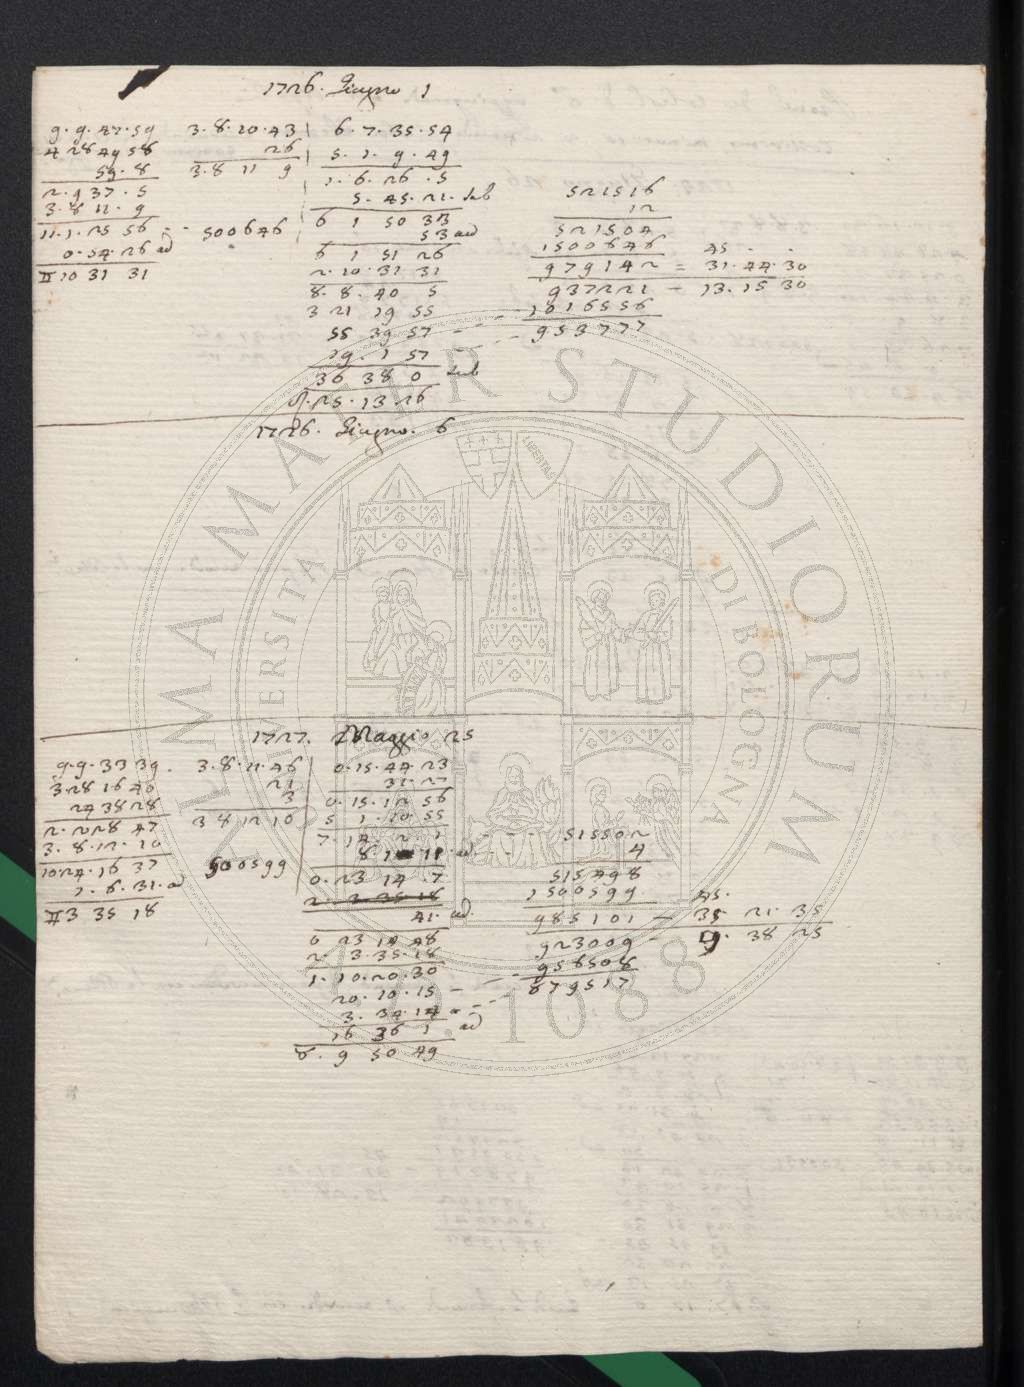 1726. Giugno 1
9. 9. 47. 59
4 28 49 58
59. 8
2. 9 37. 5
3. 8 11. 9
11. 1. 25 56 - - 500646
0. 54. 26 ad
II 10 31 31
3. 8. 10. 43
26
3. 8 11 9
6. 7. 35. 54
5. 1. 9. 49
1. 6. 26. 5
5. 45. 21. Sub
6 1 50 33
53 ad
6 1 51 26
2. 10. 31 31
8. 8. 40 5
3 21 19 55
55 39 57 - - -
19. 1 57
36 38 0 Sub
8. 25. 13. 26
521516
12
521504
1500646 45 - -
979142 = 31. 44. 30
937221 - 13. 15 30
1016556
953777
1726. Giugno. 6
1727. Maggio 25
9. 9. 33 39.
3. 28 16 40
24 38 28
2. 2 28 47
3. 8. 12. 10
10. 24. 16 37
1. 6. 31. ad
II 3 35 18
3. 8. 11. 46
21
3
3 8 12 10
500599
0. 15. 44 23
31. 27
0. 15. 12 56
5 1. 10 55
7. 14 2. 1 - - -
8. 1 11. ad -
0. 23 14. 7
2. 3 35 18
41. ad.
0 23 14 48
2. 3. 35. 18
1. 10. 20. 30
20. 10. 15 - - -
3. 34. 14
16 36 1 ad
8. 9 50 49
515502
4
515498
1500599 45.
985101 - 35 21. 35
923009 - 9. 38 25
956508
879517
ALMA MATER STUDIORUM
UNIVERSITÀ DI BOLOGNA
LIBERTAS
A.D. 1088